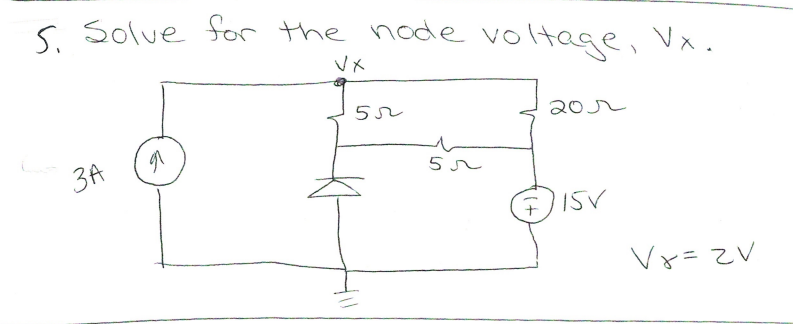 5. Solve for the node voltage, Vx.
Vx
5Ω
20Ω
5Ω
3A
15V
Vγ = 2V